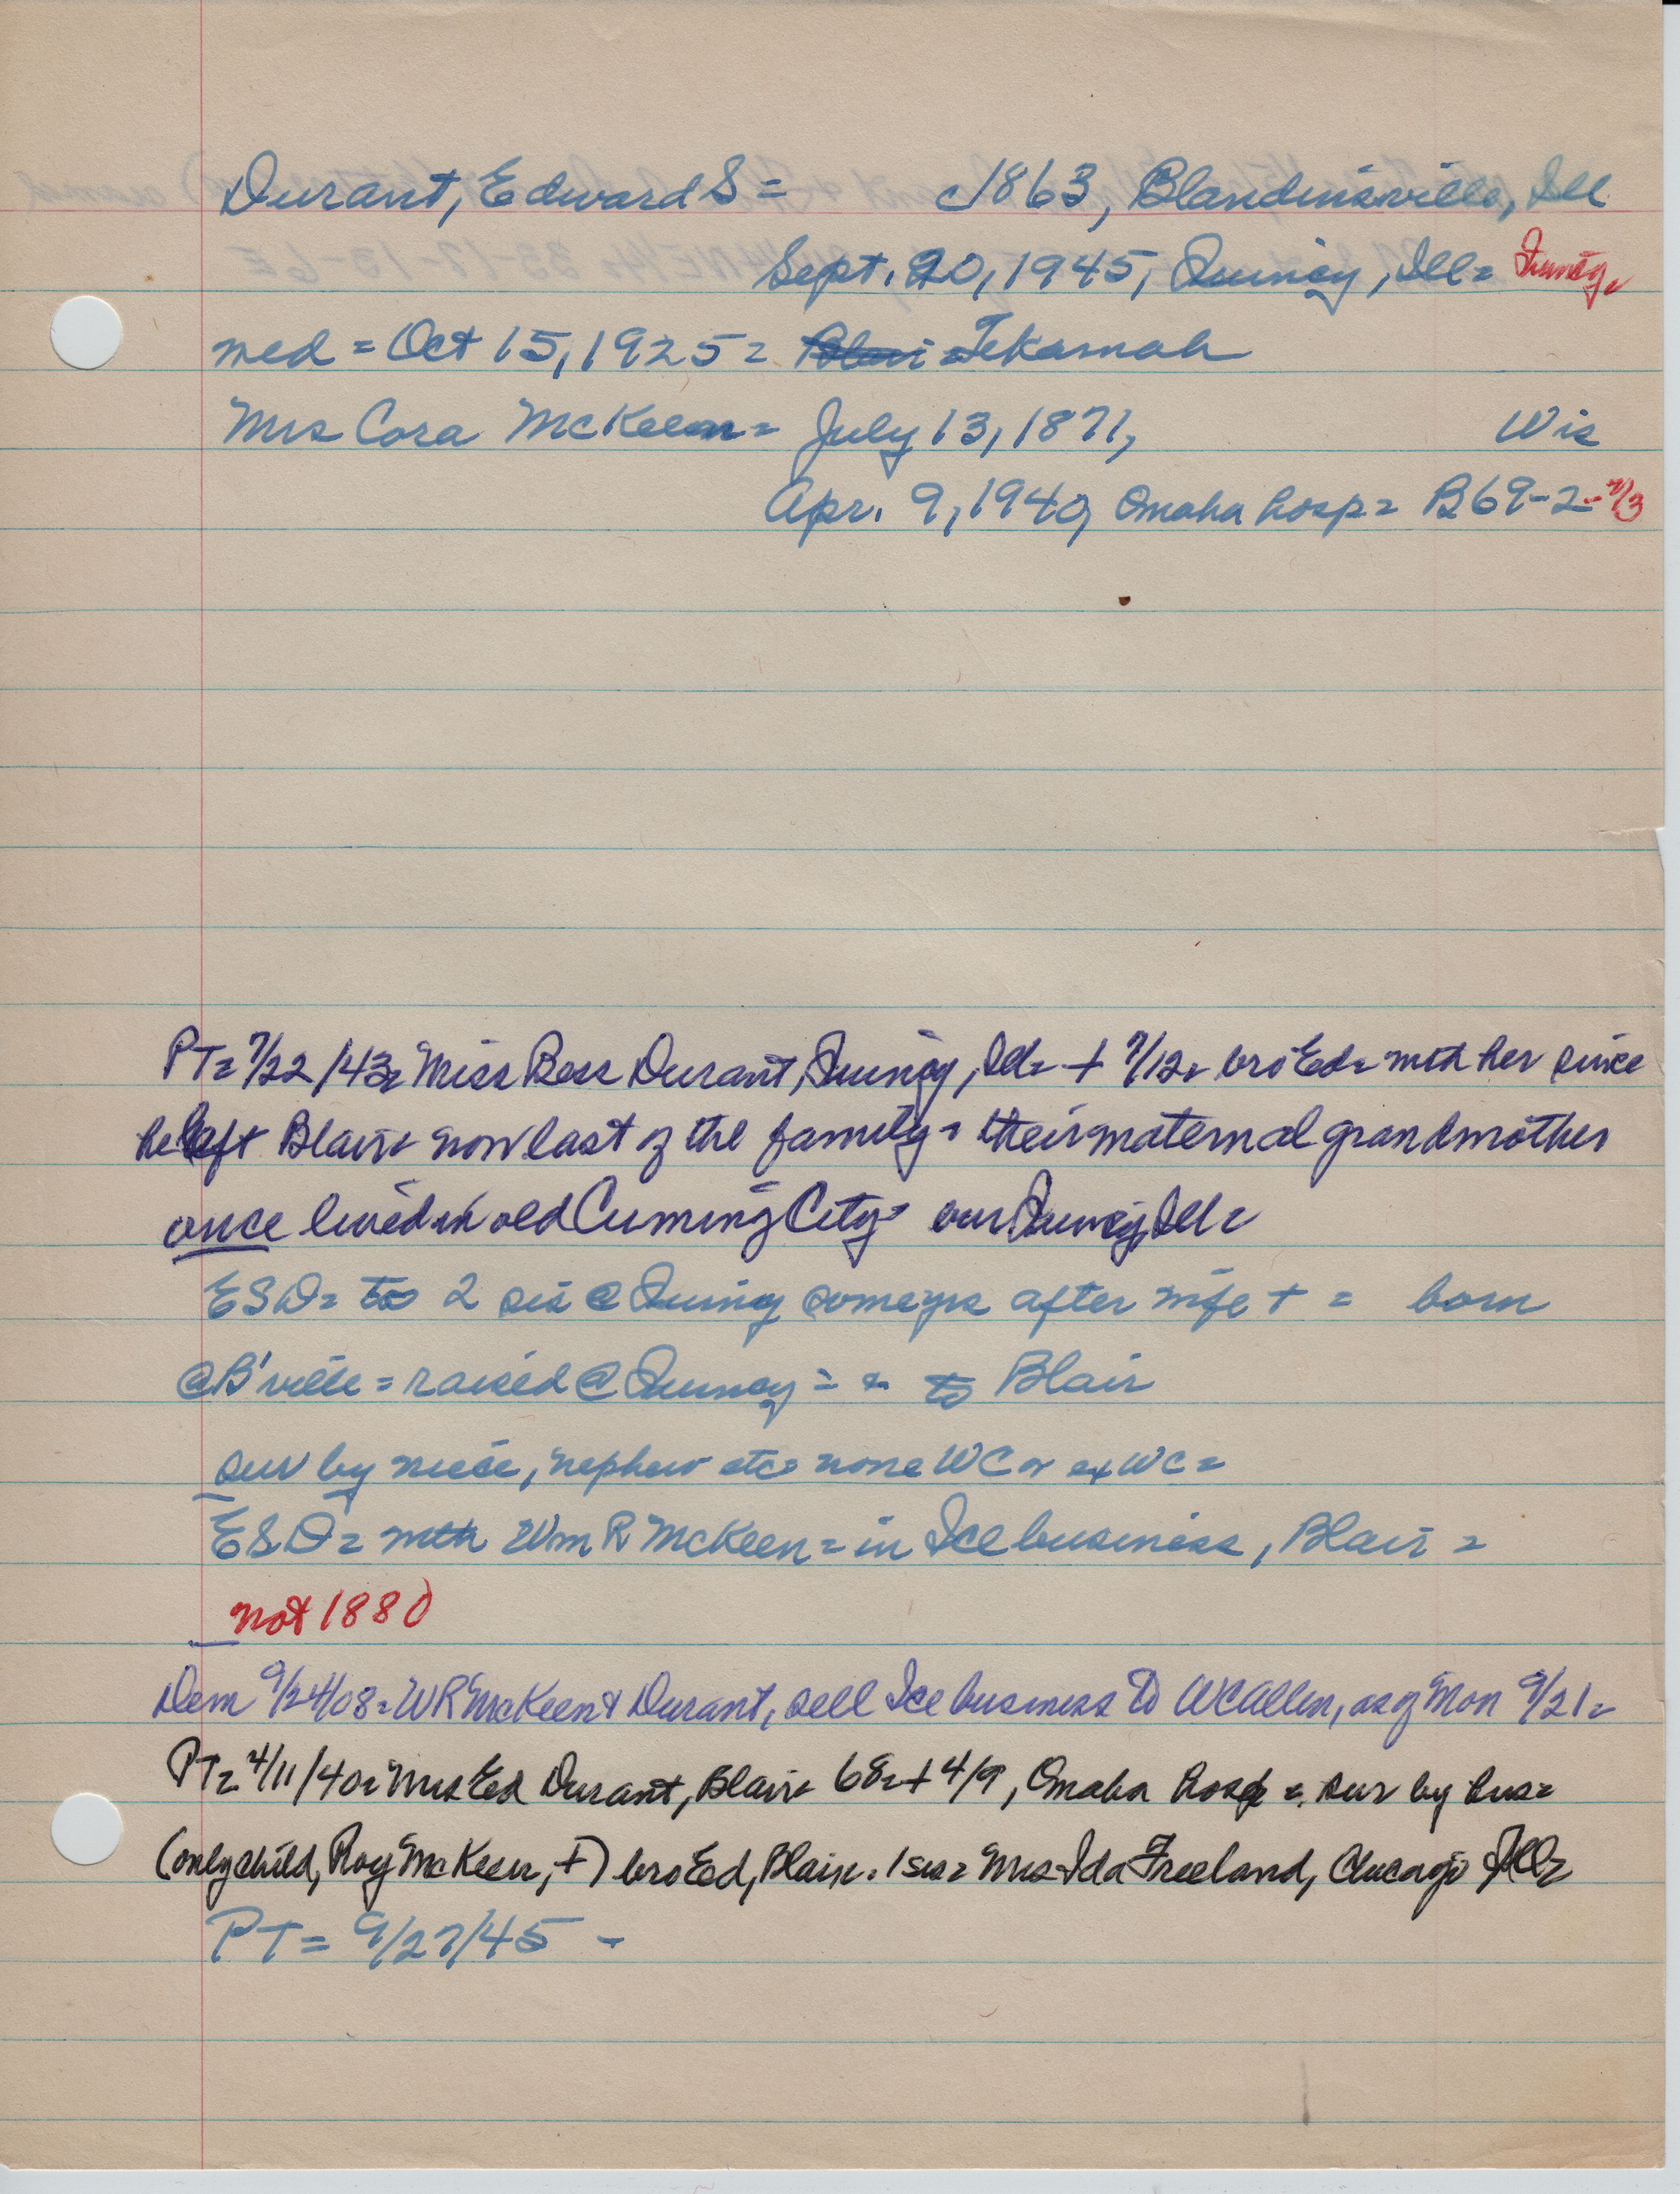 Durant, Edward S = c1863, Blandinsville, Ill
Sept. 20, 1945, Quincy, Ill = Quincy =
med = Oct 15, 1925 = Blair = Tekamah
Mrs Cora McKeen = July 13, 1871, Wis
Apr. 9, 1940, Omaha hosp = B69-2-
PT = 7/22/43 = Miss Bess Durant, Quincy, Ill = + 7/12 = bro Ed = with her since
he left Blair = now last of the family = their maternal grandmother
once lived in old Cuming City = bur Quincy, Ill =
ESD = to 2 sis @ Quincy some yrs after wife + = born
@ B'ville = raised @ Quincy = + to Blair
sur by niece, nephew etc = none WC or ex WC =
ESD = with Wm R McKeen = in Ice business, Blair =
not 1880
Dem 9/24/08 = WR McKeen + Durant, sell Ice business to WC Allen, as of Mon 9/21 =
PT = 4/11/40 = Mrs Ed Durant, Blair = 68 = + 4/9, Omaha hosp = sur by hus =
(only child, Roy McKeen, +) bro Ed, Blair. 1 sis = Mrs Ida Freeland, Chicago Ill =
PT = 9/27/45 -